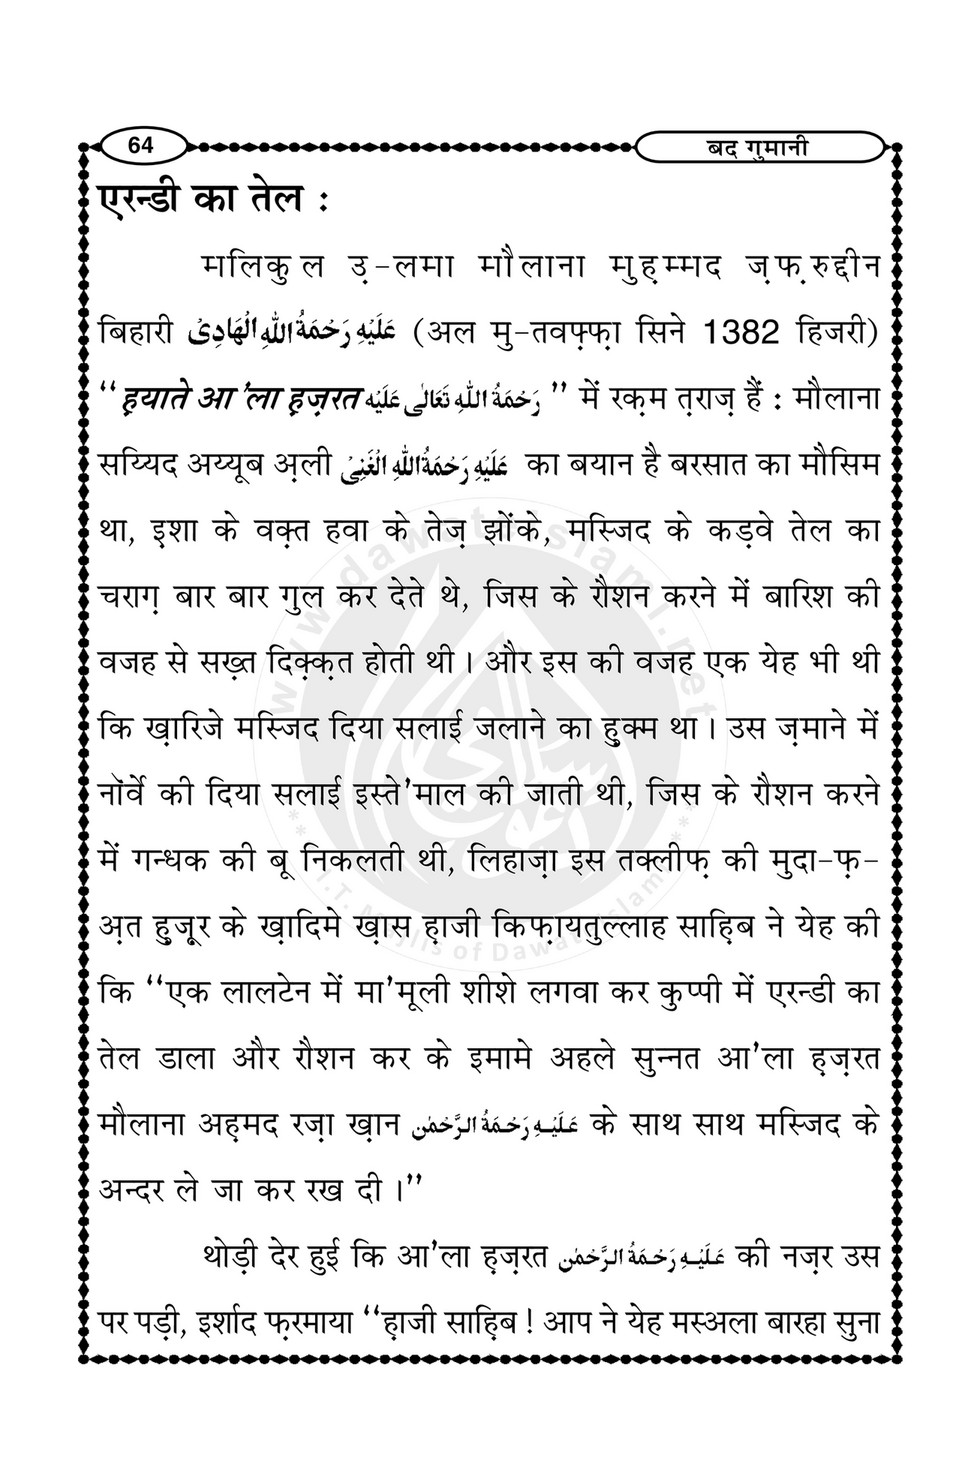 64
बद गुमानी
एरन्डी का तेल :
मालिकुल उ़-लमा मौलाना मुह़म्मद ज़फ़रुद्दीन
बिहारी عَلَيْهِ رَحْمَةُ اللّٰهِ الْهَادِىْ (अल मु-तवफ़्फ़ा सिने 1382 हिजरी)
‘‘ ह़याते आ’ला ह़ज़रत رَحْمَةُ اللّٰهِ تَعَالٰى عَلَيْه ’’ में रक़म त़राज़ हैं : मौलाना
सय्यिद अय्यूब अ़ली عَلَيْهِ رَحْمَةُ اللّٰهِ الْغَنِىْ का बयान है बरसात का मौसिम
था, इ़शा के वक़्त हवा के तेज़ झोंके, मस्जिद के कड़वे तेल का
चराग़ बार बार गुल कर देते थे, जिस के रौशन करने में बारिश की
वजह से सख़्त दिक़्क़त होती थी । और इस की वजह एक येह भी थी
कि ख़ारिजे मस्जिद दिया सलाई जलाने का हु़क्म था । उस ज़माने में
नॉर्वे की दिया सलाई इस्ते’माल की जाती थी, जिस के रौशन करने
में गन्धक की बू निकलती थी, लिहाज़ा इस तक्लीफ़ की मुदा-फ़-
अ़त हु़ज़ूर के ख़ादिमे ख़ास ह़ाजी किफ़ायतुल्लाह साह़िब ने येह की
कि ‘‘एक लालटेन में मा’मूली शीशे लगवा कर कुप्पी में एरन्डी का
तेल डाला और रौशन कर के इमामे अहले सुन्नत आ’ला ह़ज़रत
मौलाना अह़मद रज़ा ख़ान عَلَيْهِ رَحْمَةُ الرَّحْمٰن के साथ साथ मस्जिद के
अन्दर ले जा कर रख दी ।’’
थोड़ी देर हुई कि आ’ला ह़ज़रत عَلَيْهِ رَحْمَةُ الرَّحْمٰن की नज़र उस
पर पड़ी, इर्शाद फ़रमाया ‘‘ह़ाजी साह़िब ! आप ने येह मस्अला बारहा सुना
www.dawateislami.net
I.T. Majlis of DawateIslami